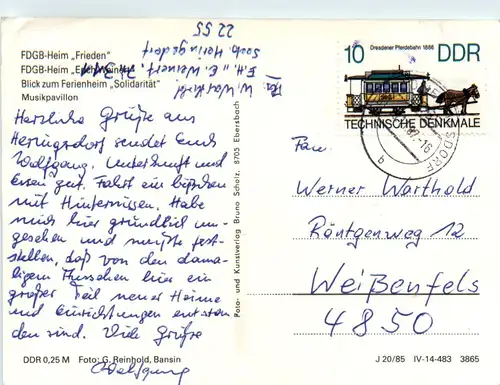 FDGB-Heim „Frieden"
FDGB-Heim
Blick zum Ferienheim „Solidarität"
Musikpavillon
W. Warthold
F.H. „E. Weinert"
Seeb. Heringsdorf
22 55
Herzliche Grüße aus
Heringsdorf sendet Euch
Wolfgang. Unterkunft und
Essen gut. Fahrt ein bißchen
mit Hindernissen. Habe
mich hier gründlich um-
gesehen und mußte fest-
stellen, daß von den dama-
ligen Aussehen hier ein
großer Teil neuer Heime
und Einrichtungen entstan
den sind. Viele Grüße
Wolfgang
DDR 0,25 M Foto: G. Reinhold, Bansin
Foto- und Kunstverlag Bruno Scholz, 8705 Ebersbach
10 Dresdener Pferdebahn 1886 DDR
TECHNISCHE DENKMALE
Fam.
Werner Warthold
Röntgenweg 12
Weißenfels
4850
J 20/85 IV-14-483 3865